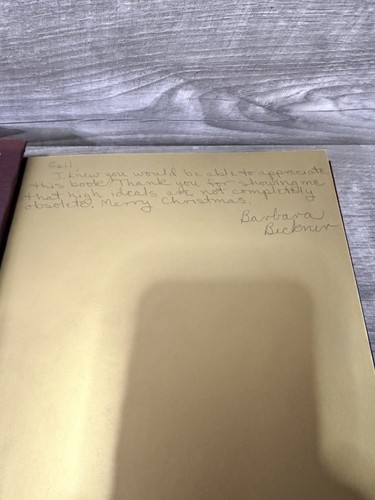 Gail
I knew you would be able to appreciate
this book. Thank you for showing me
that high ideals are not completely
obsolete. Merry Christmas.
Barbara
Beckner